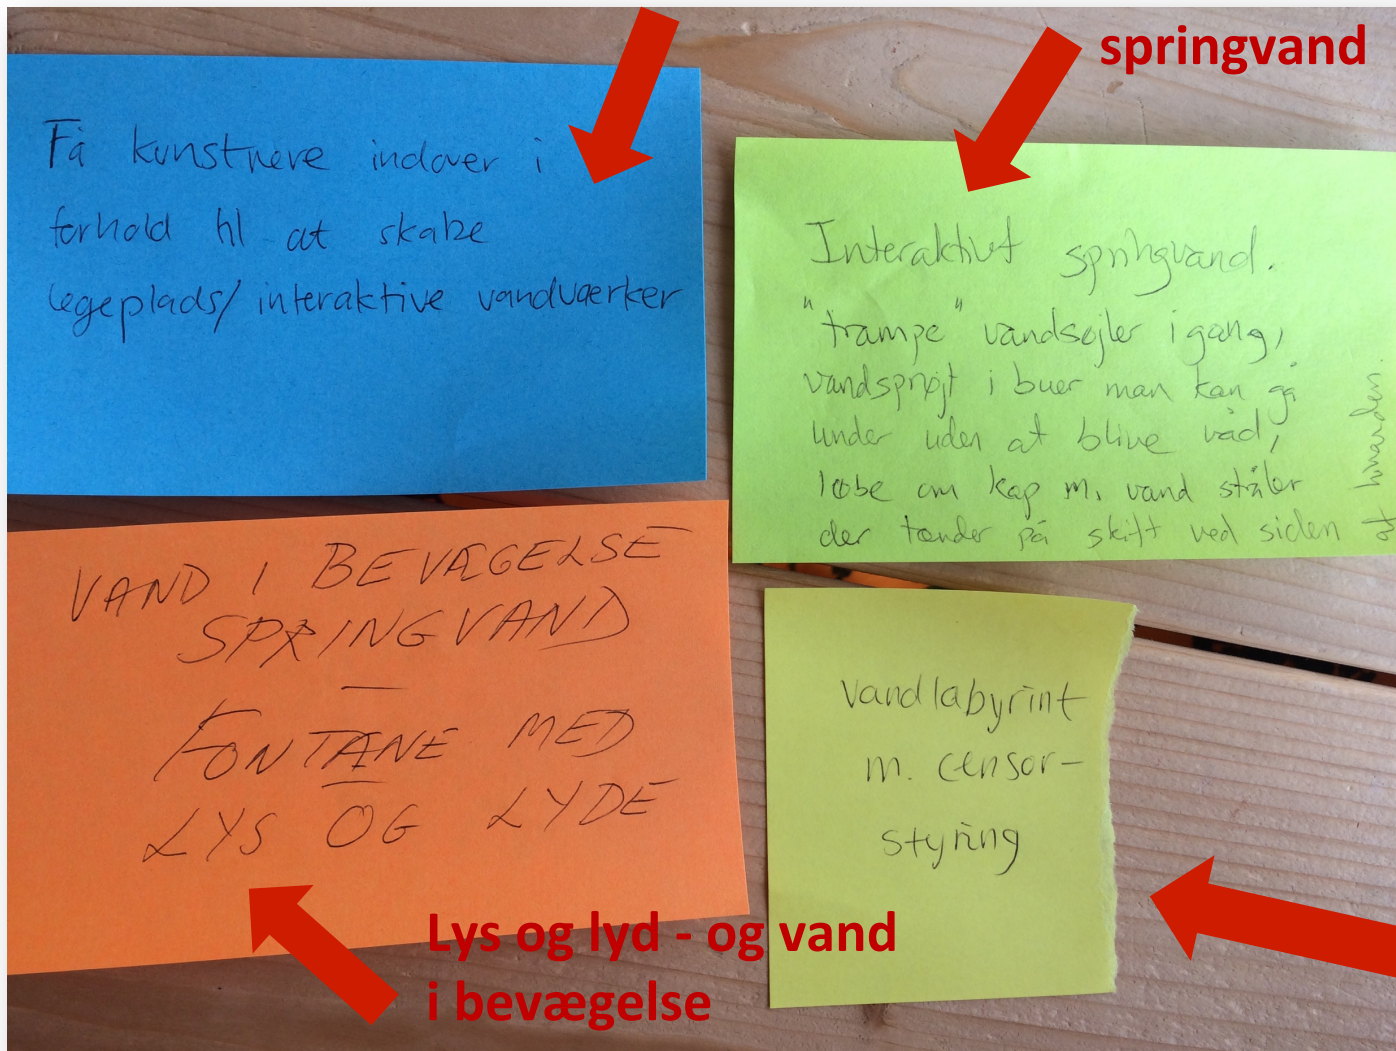 springvand
Få kunstnere indover i
forhold til at skabe
legeplads/ interaktive vandværker
Interaktivt springvand.
"trampe" vandsøjler i gang,
vandsprøjt i buer man kan gå
under uden at blive våd,
løbe om kap m. vand stråler
der tænder på skift ved siden af
hinanden.
VAND I BEVÆGELSE
SPRINGVAND
—
FONTÆNE MED
LYS OG LYDE
vandlabyrint
m. censor-
styring
Lys og lyd - og vand
i bevægelse